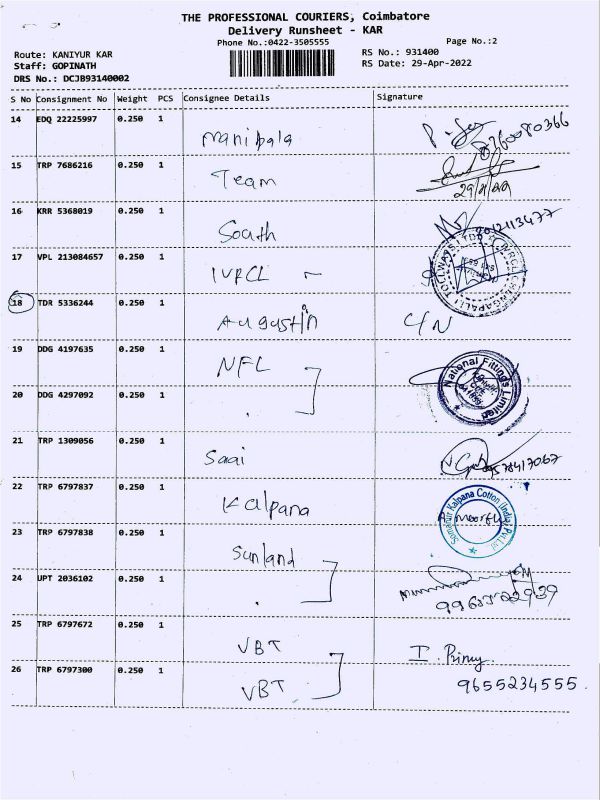 THE PROFESSIONAL COURIERS, Coimbatore
Delivery Runsheet - KAR
Phone No.:0422-3505555
Page No.:2
Route: KANIYUR KAR
RS No.: 931400
Staff: GOPINATH
RS Date: 29-Apr-2022
DRS No.: DCJB93140002
S No Consignment No Weight PCS Consignee Details Signature
14 EDQ 22225997 0.250 1 Manibala
15 TRP 7686216 0.250 1 Team
16 KRR 5368019 0.250 1 South
17 VPL 213084657 0.250 1 IVRCL
18 TDR 5336244 0.250 1 Augustin C/N
19 DDG 4197635 0.250 1 NFL
National Fittings Limited
20 DDG 4297092 0.250 1
21 TRP 1309056 0.250 1 Saai
22 TRP 6797837 0.250 1 Kalpana
Kalpana Cotton (India) Pvt Ltd
23 TRP 6797838 0.250 1 Sunland
24 UPT 2036102 0.250 1
25 TRP 6797672 0.250 1 VBT
26 TRP 6797300 0.250 1 VBT 9655234555